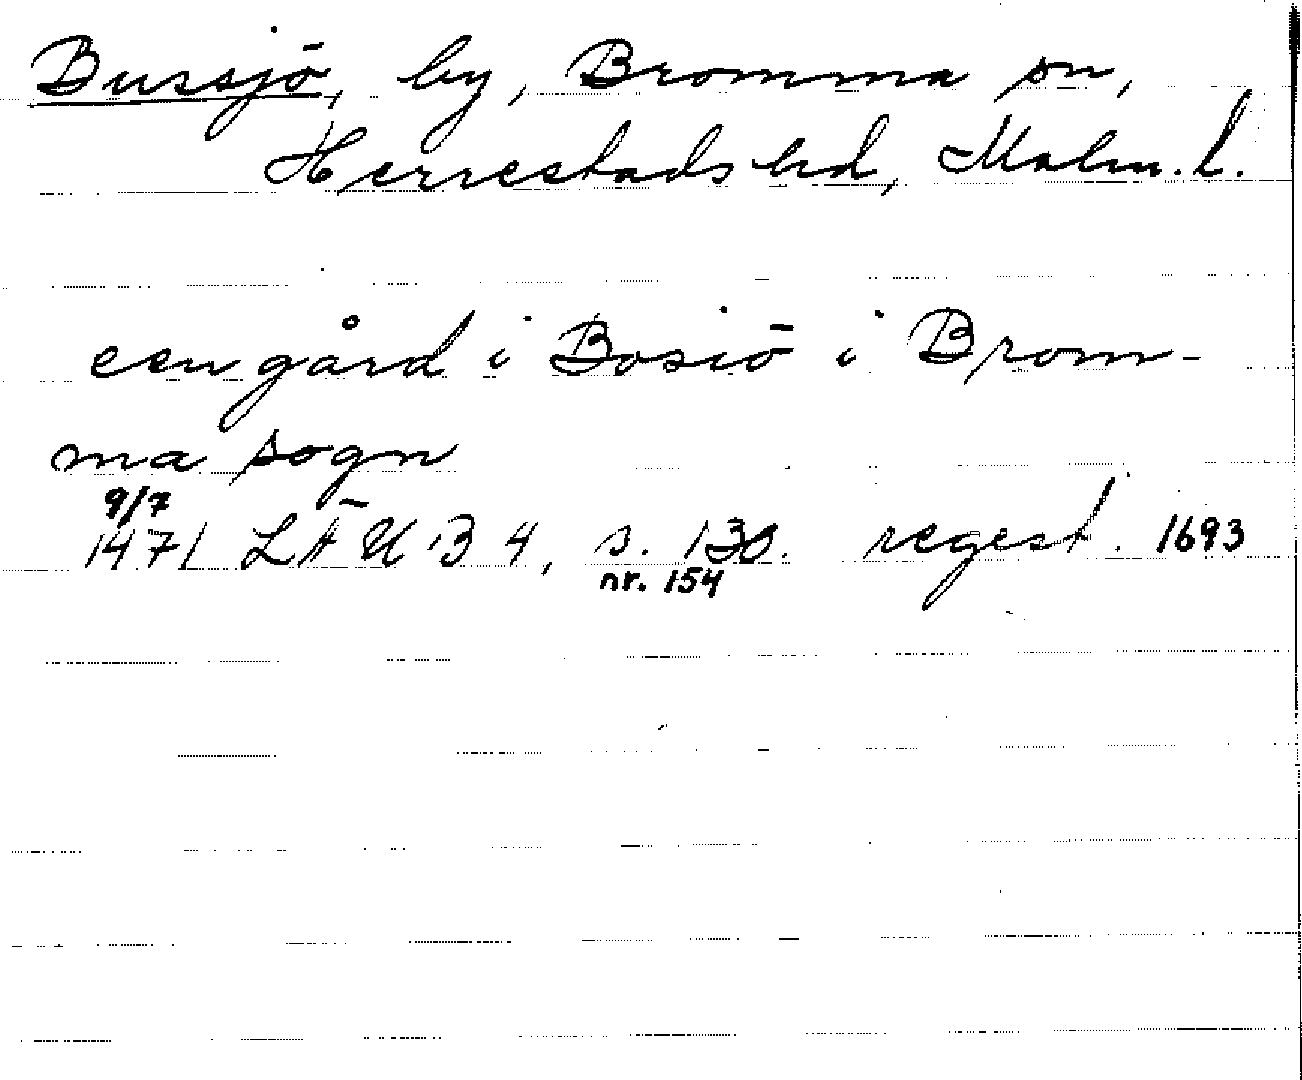 Bussjö, by, Bromma sn,
Herrestads hd, Malm. l.
een gård i Bosiö i Brom-
ma sogn
9/7
1471 LÄUB 4, s. 130. regest. 1693
nr. 154